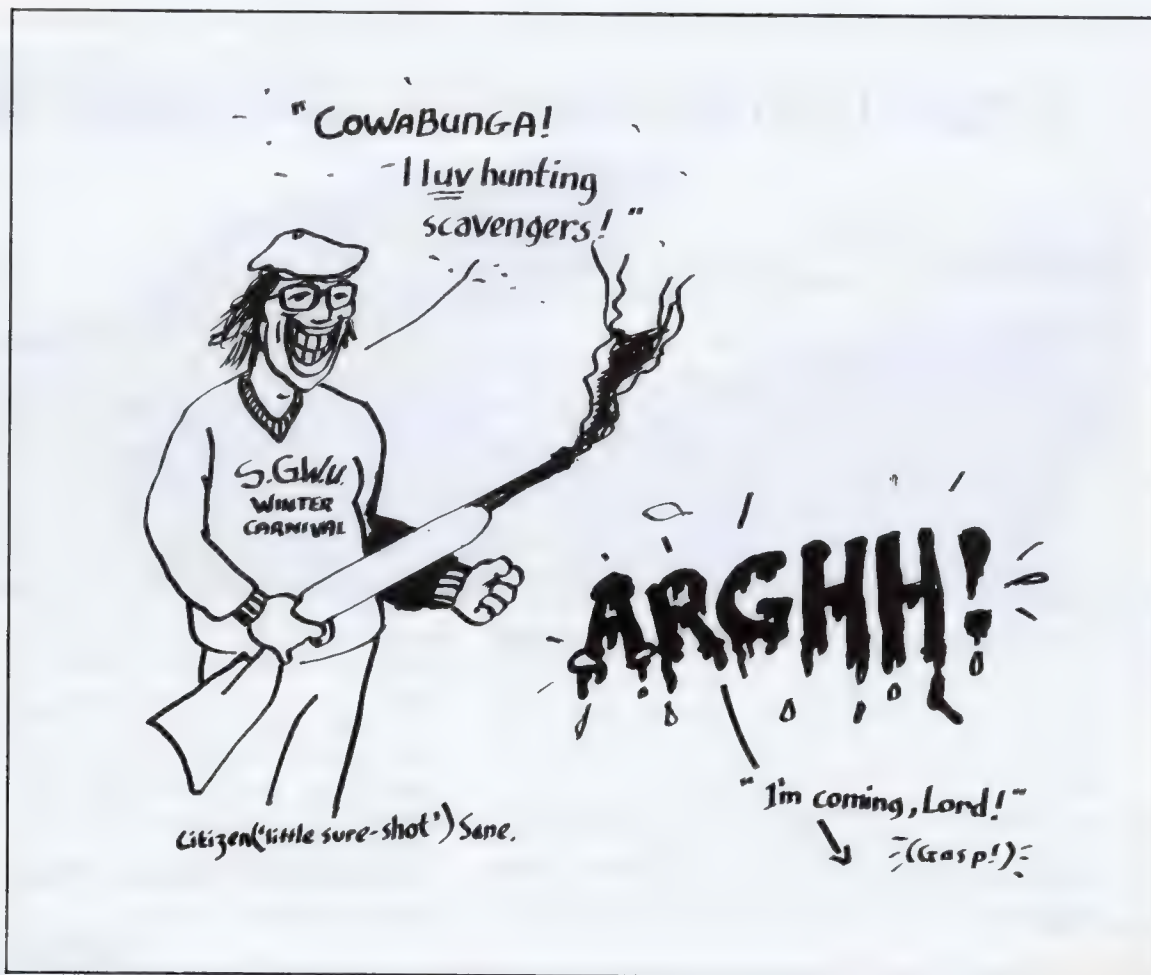 "COWABUNGA!
I luv hunting
scavengers!"
S.G.W.U.
WINTER
CARNIVAL
ARGHH!
"I'm coming, Lord!"
(Gasp!)
Citizen('little sure-shot') Sane.